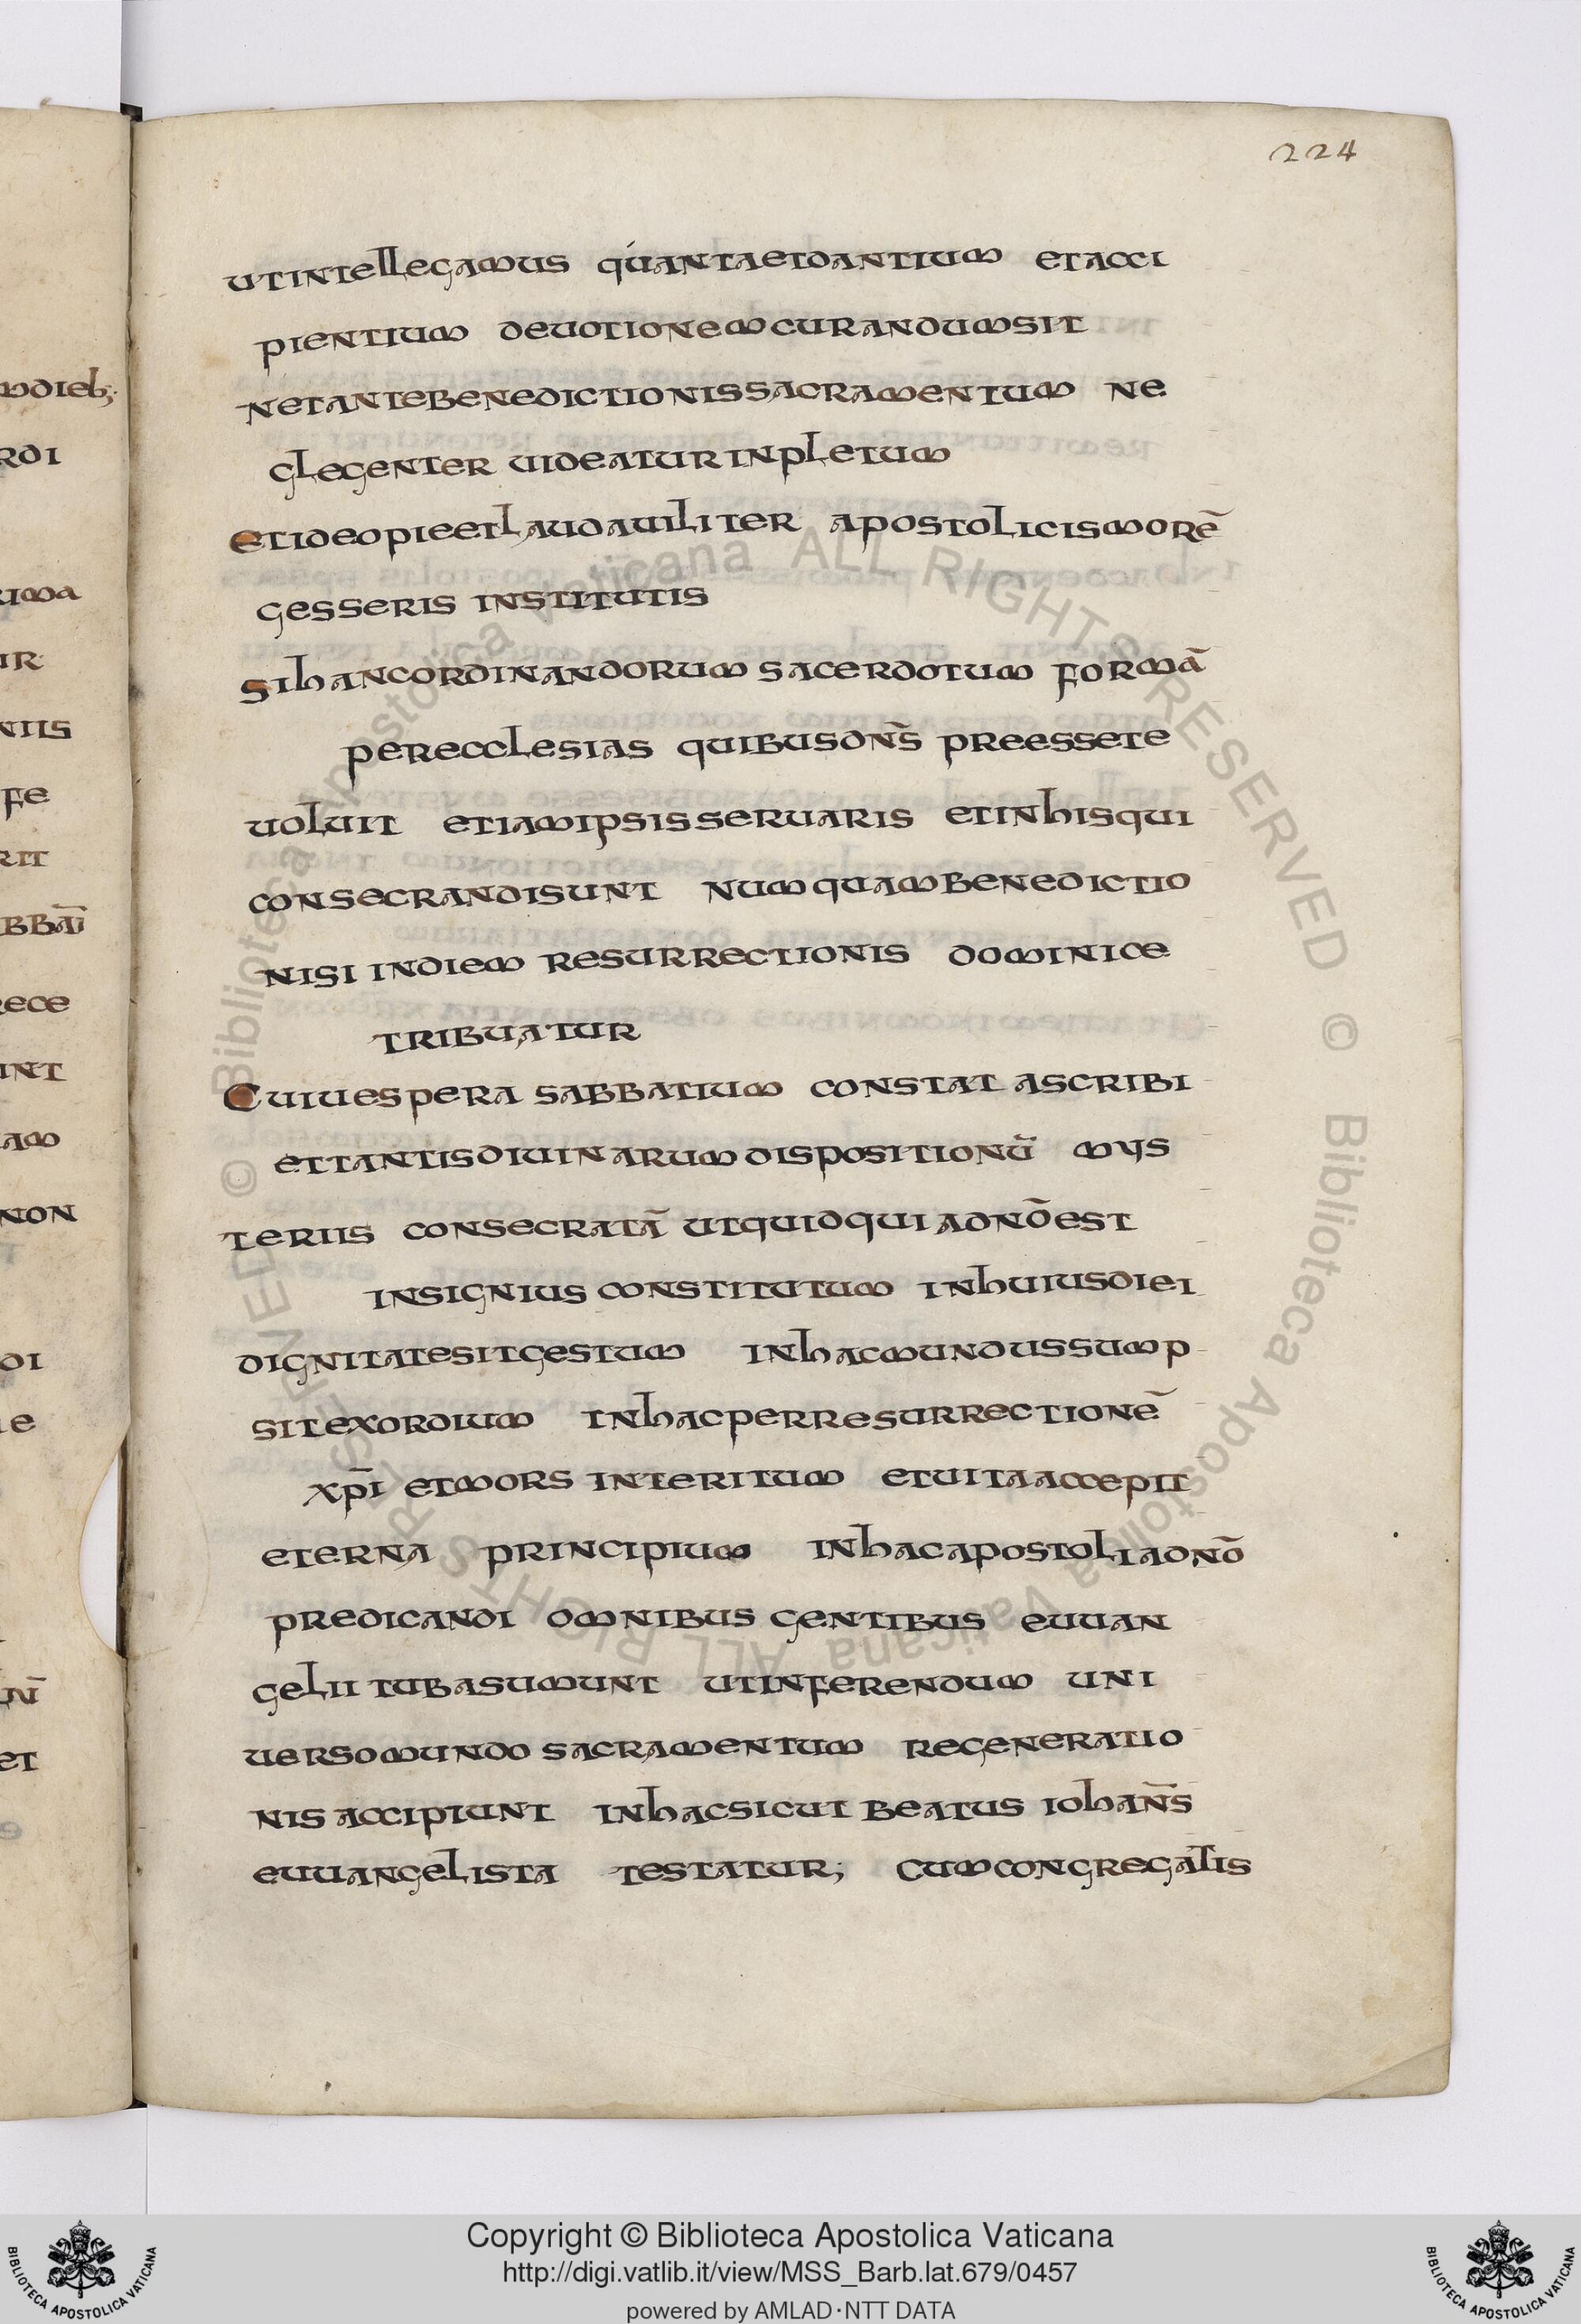 224
utintellegamus quantaetdantium etacci
pientium deuotionemcurandumsit
netantebenedictionissacramentum ne
glegenter uideaturinpletum
etideopieetlaudauiliter apostolicismorē
gesseris institutis
sihancordinandorum sacerdotum formā
perecclesias quibusdn̄s preessete
uoluit etiamipsisseruaris etinhisqui
consecrandisunt numquambenedictio
nisi indiem resurrectionis dominice
tribuatur
Cuiuespera sabbatium constat ascribi
ettantisdiuinarumdispositionū mys
teriis consecratā utquidquiadnōest
insignius constitutum inhuiusdiei
dignitatesitgestum inhacmundussump
sitexordium inhacperresurrectionē
xp̄i etmors interitum etuitaaccepit
eterna principium inhacapostoliadnō
predicandi omnibus gentibus euuan
gelii tubasumunt utinferendum uni
uersomundo sacramentum regeneratio
nis accipiunt inhacsicut beatus iohan̄s
euuangelista testatur; Cumcongregatis
mdieb;
rdi
rima
ur
niis
fe
rit
bbā
rece
int
am
non
di
e
et
© Biblioteca Apostolica Vaticana ALL RIGHTS RESERVED
© Biblioteca Apostolica Vaticana ALL RIGHTS RESERVED
Copyright © Biblioteca Apostolica Vaticana
http://digi.vatlib.it/view/MSS_Barb.lat.679/0457
powered by AMLAD·NTT DATA
BIBLIOTECA APOSTOLICA VATICANA
BIBLIOTECA APOSTOLICA VATICANA